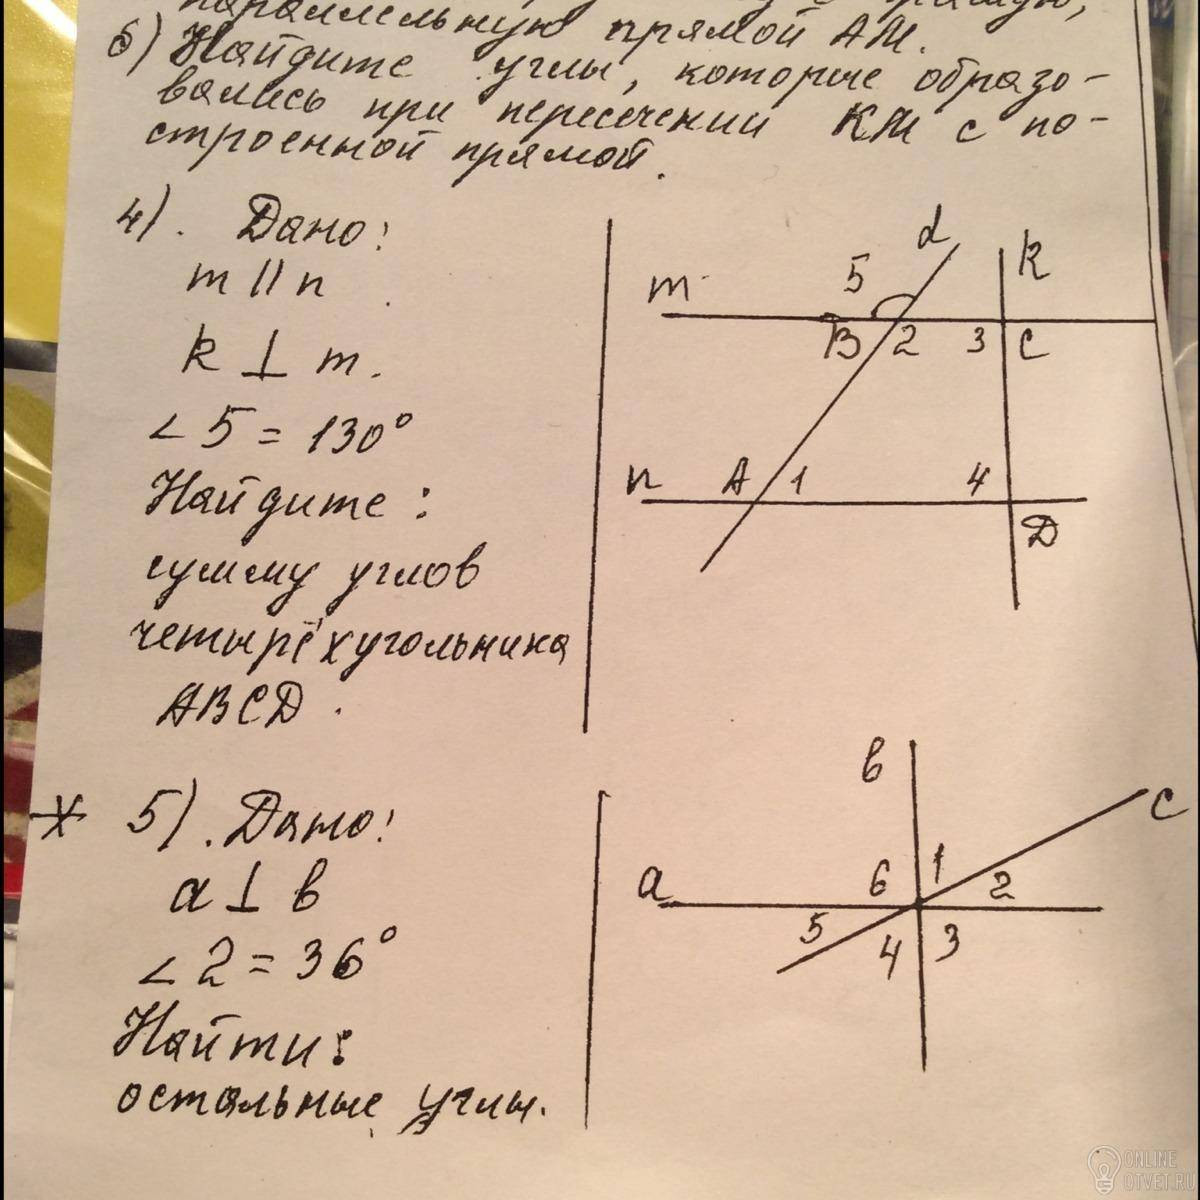 параллельную прямой АМ.
б) Найдите углы, которые образо-
вались при пересечении КМ с по-
строенной прямой.
4). Дано:
m || n
k ⊥ m.
∠5 = 130°
Найдите:
сумму углов
четырёхугольника
ABCD.
m
5
d
k
B 2 3 C
n A 1 4
D
* 5). Дано:
a ⊥ b
∠2 = 36°
Найти:
остальные углы.
b
c
a 6 1 2
5 4 3
ONLINE
OTVET.RU